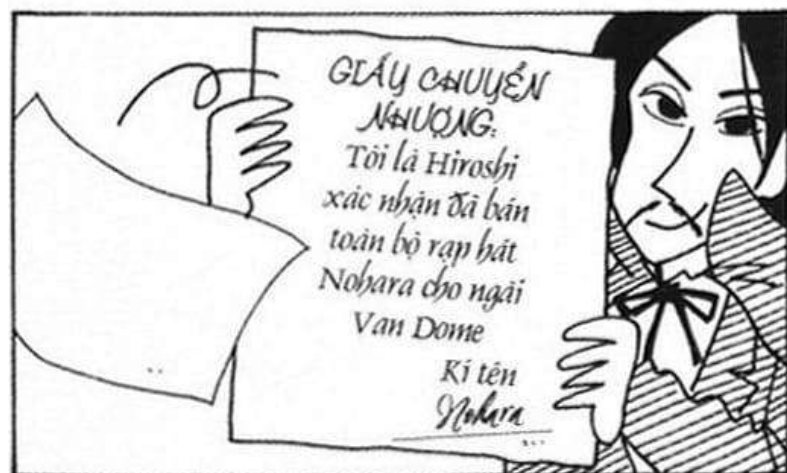 GIẤY CHUYỂN
NHƯỢNG:
Tôi là Hiroshi
xác nhận đã bán
toàn bộ rạp hát
Nohara cho ngài
Van Dome
Kí tên
Nohara